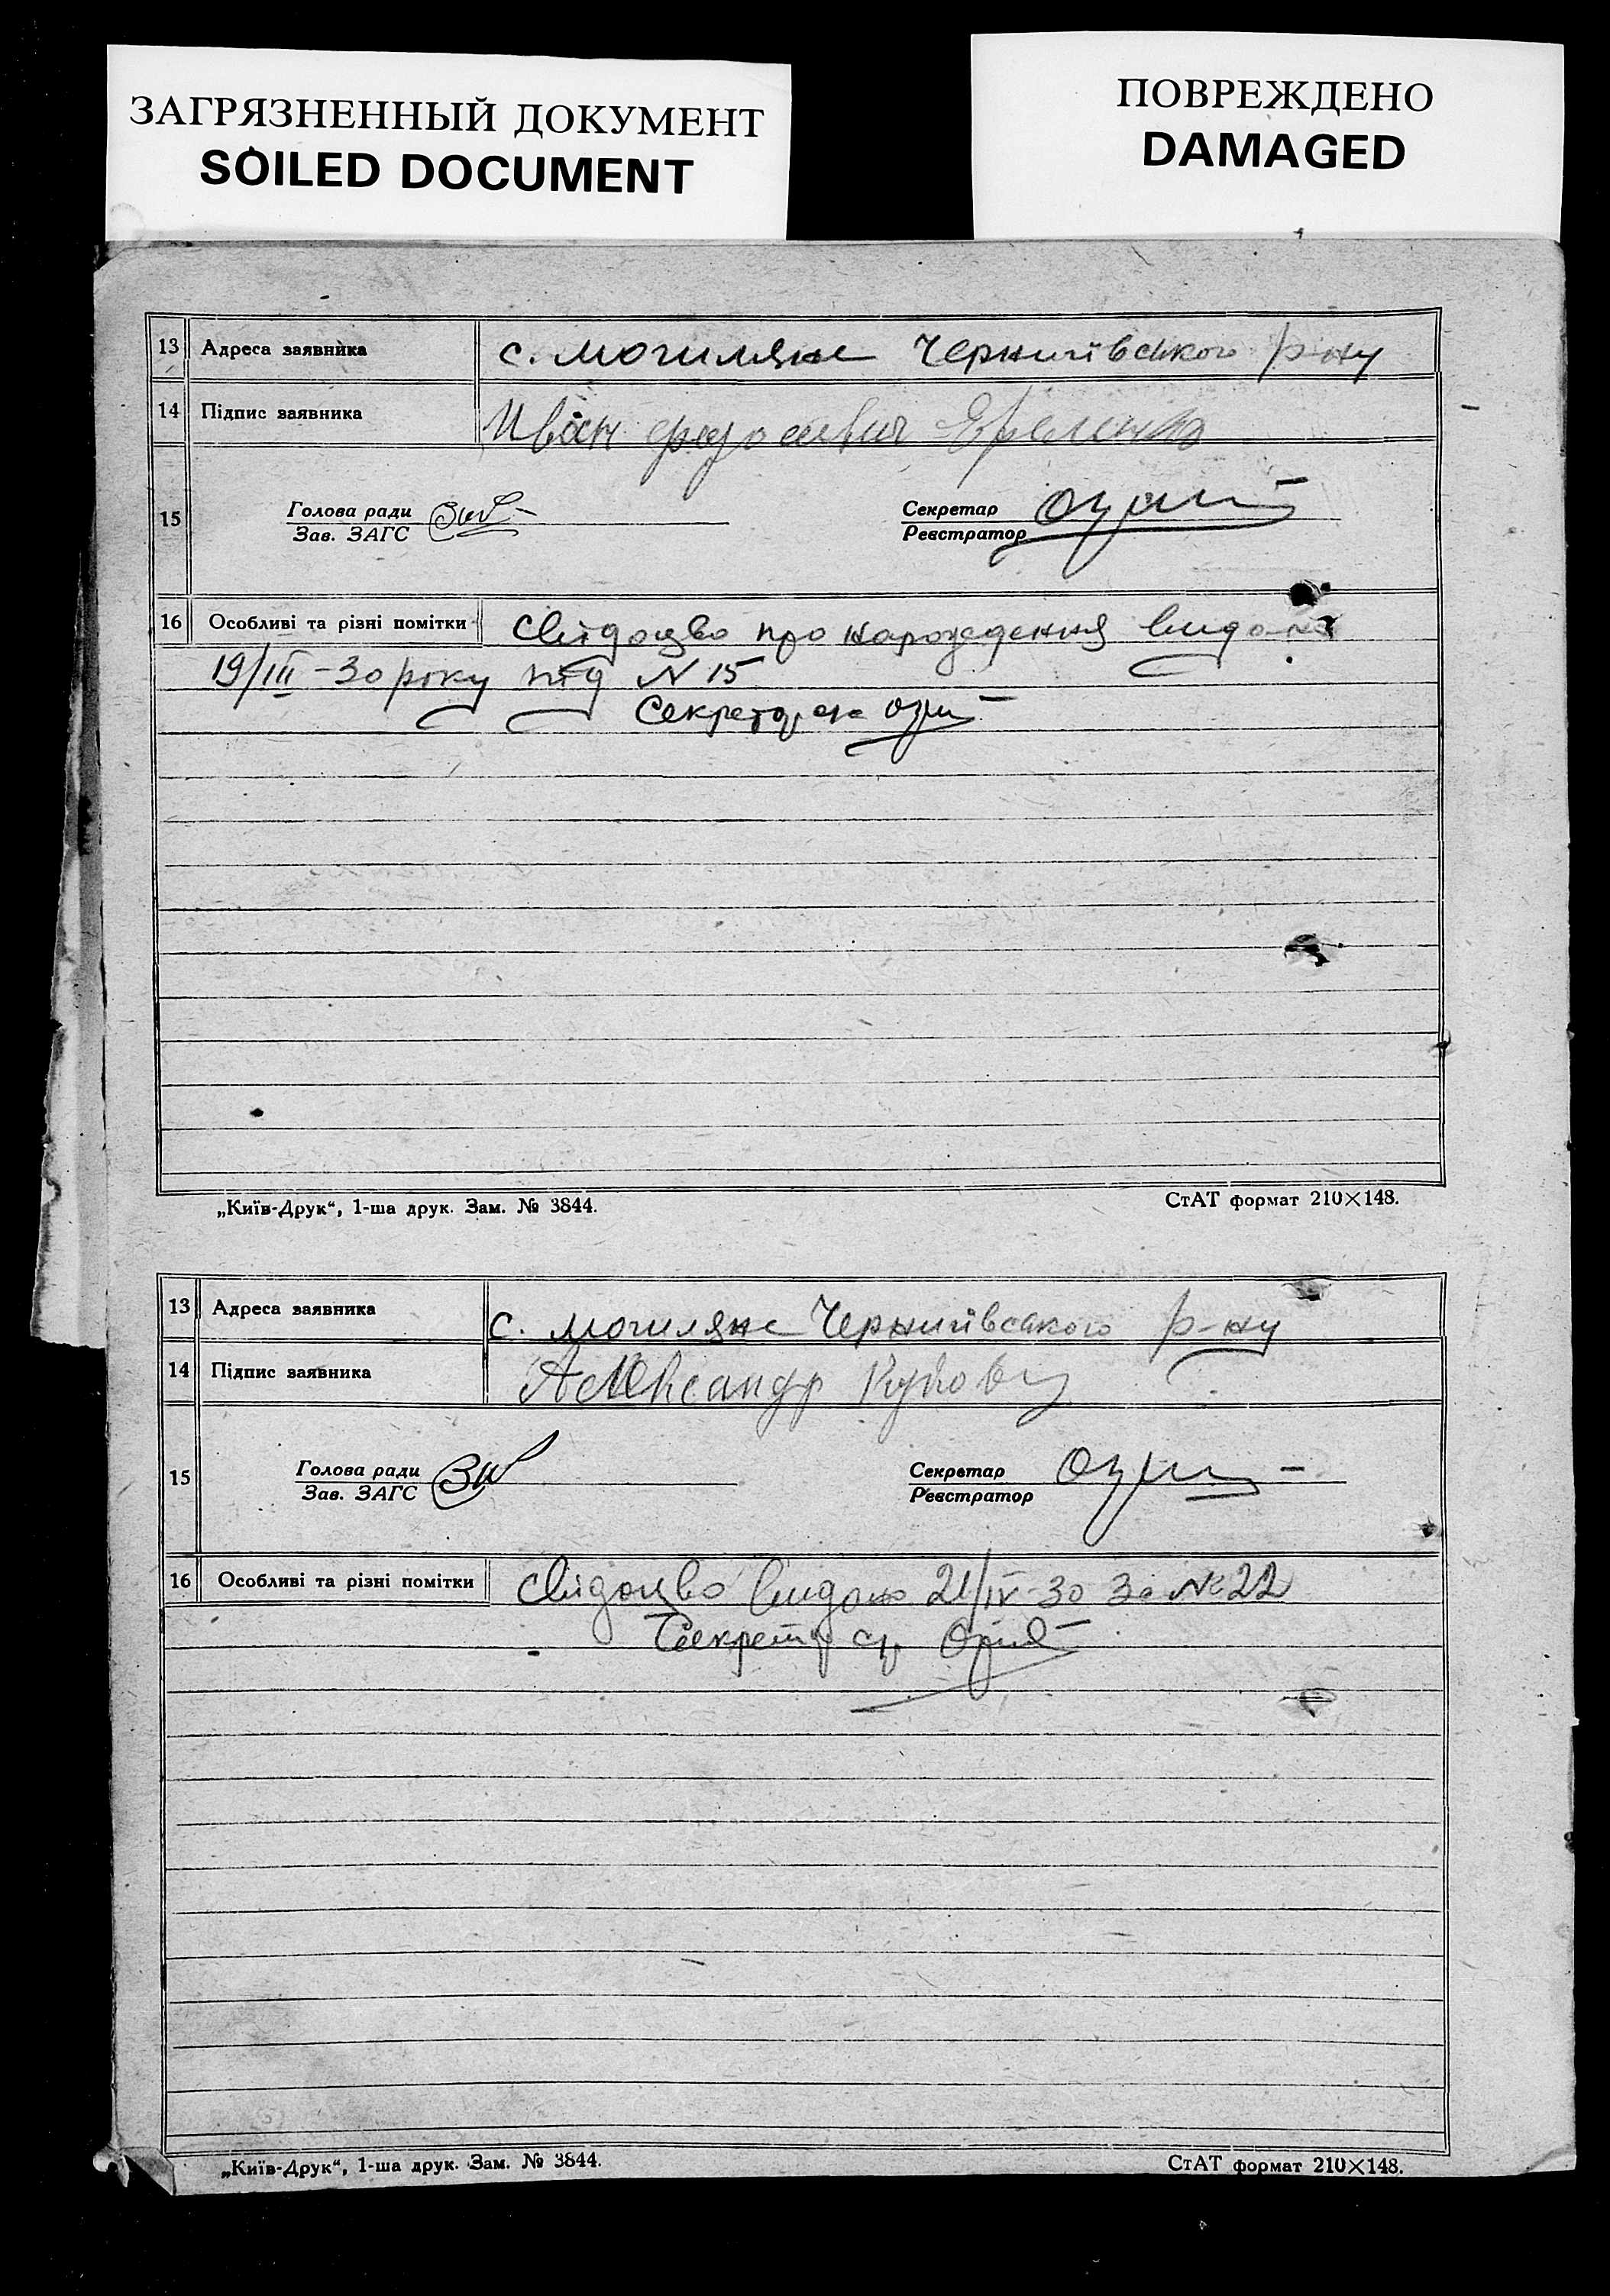 ЗАГРЯЗНЕННЫЙ ДОКУМЕНТ
SOILED DOCUMENT
ПОВРЕЖДЕНО
DAMAGED
13 Адреса заявника с. Могиляне Чернигівського р-ну
14 Підпис заявника Иван
15 Голова ради Секретар
Зав. ЗАГС Реєстратор
16 Особливі та різні помітки Свідоцво про народження видано
19/III-30 року під N 15
Секретар
„Київ-Друк“, 1-ша друк. Зам. № 3844. СтАТ формат 210×148.
13 Адреса заявника с. Могиляне Чернигівського р-ну
14 Підпис заявника Александр
15 Голова ради Секретар
Зав. ЗАГС Реєстратор
16 Особливі та різні помітки Свідоцво видано 21/IV-30 За № 22
Секретар
„Київ-Друк“, 1-ша друк. Зам. № 3844. СтАТ формат 210×148.